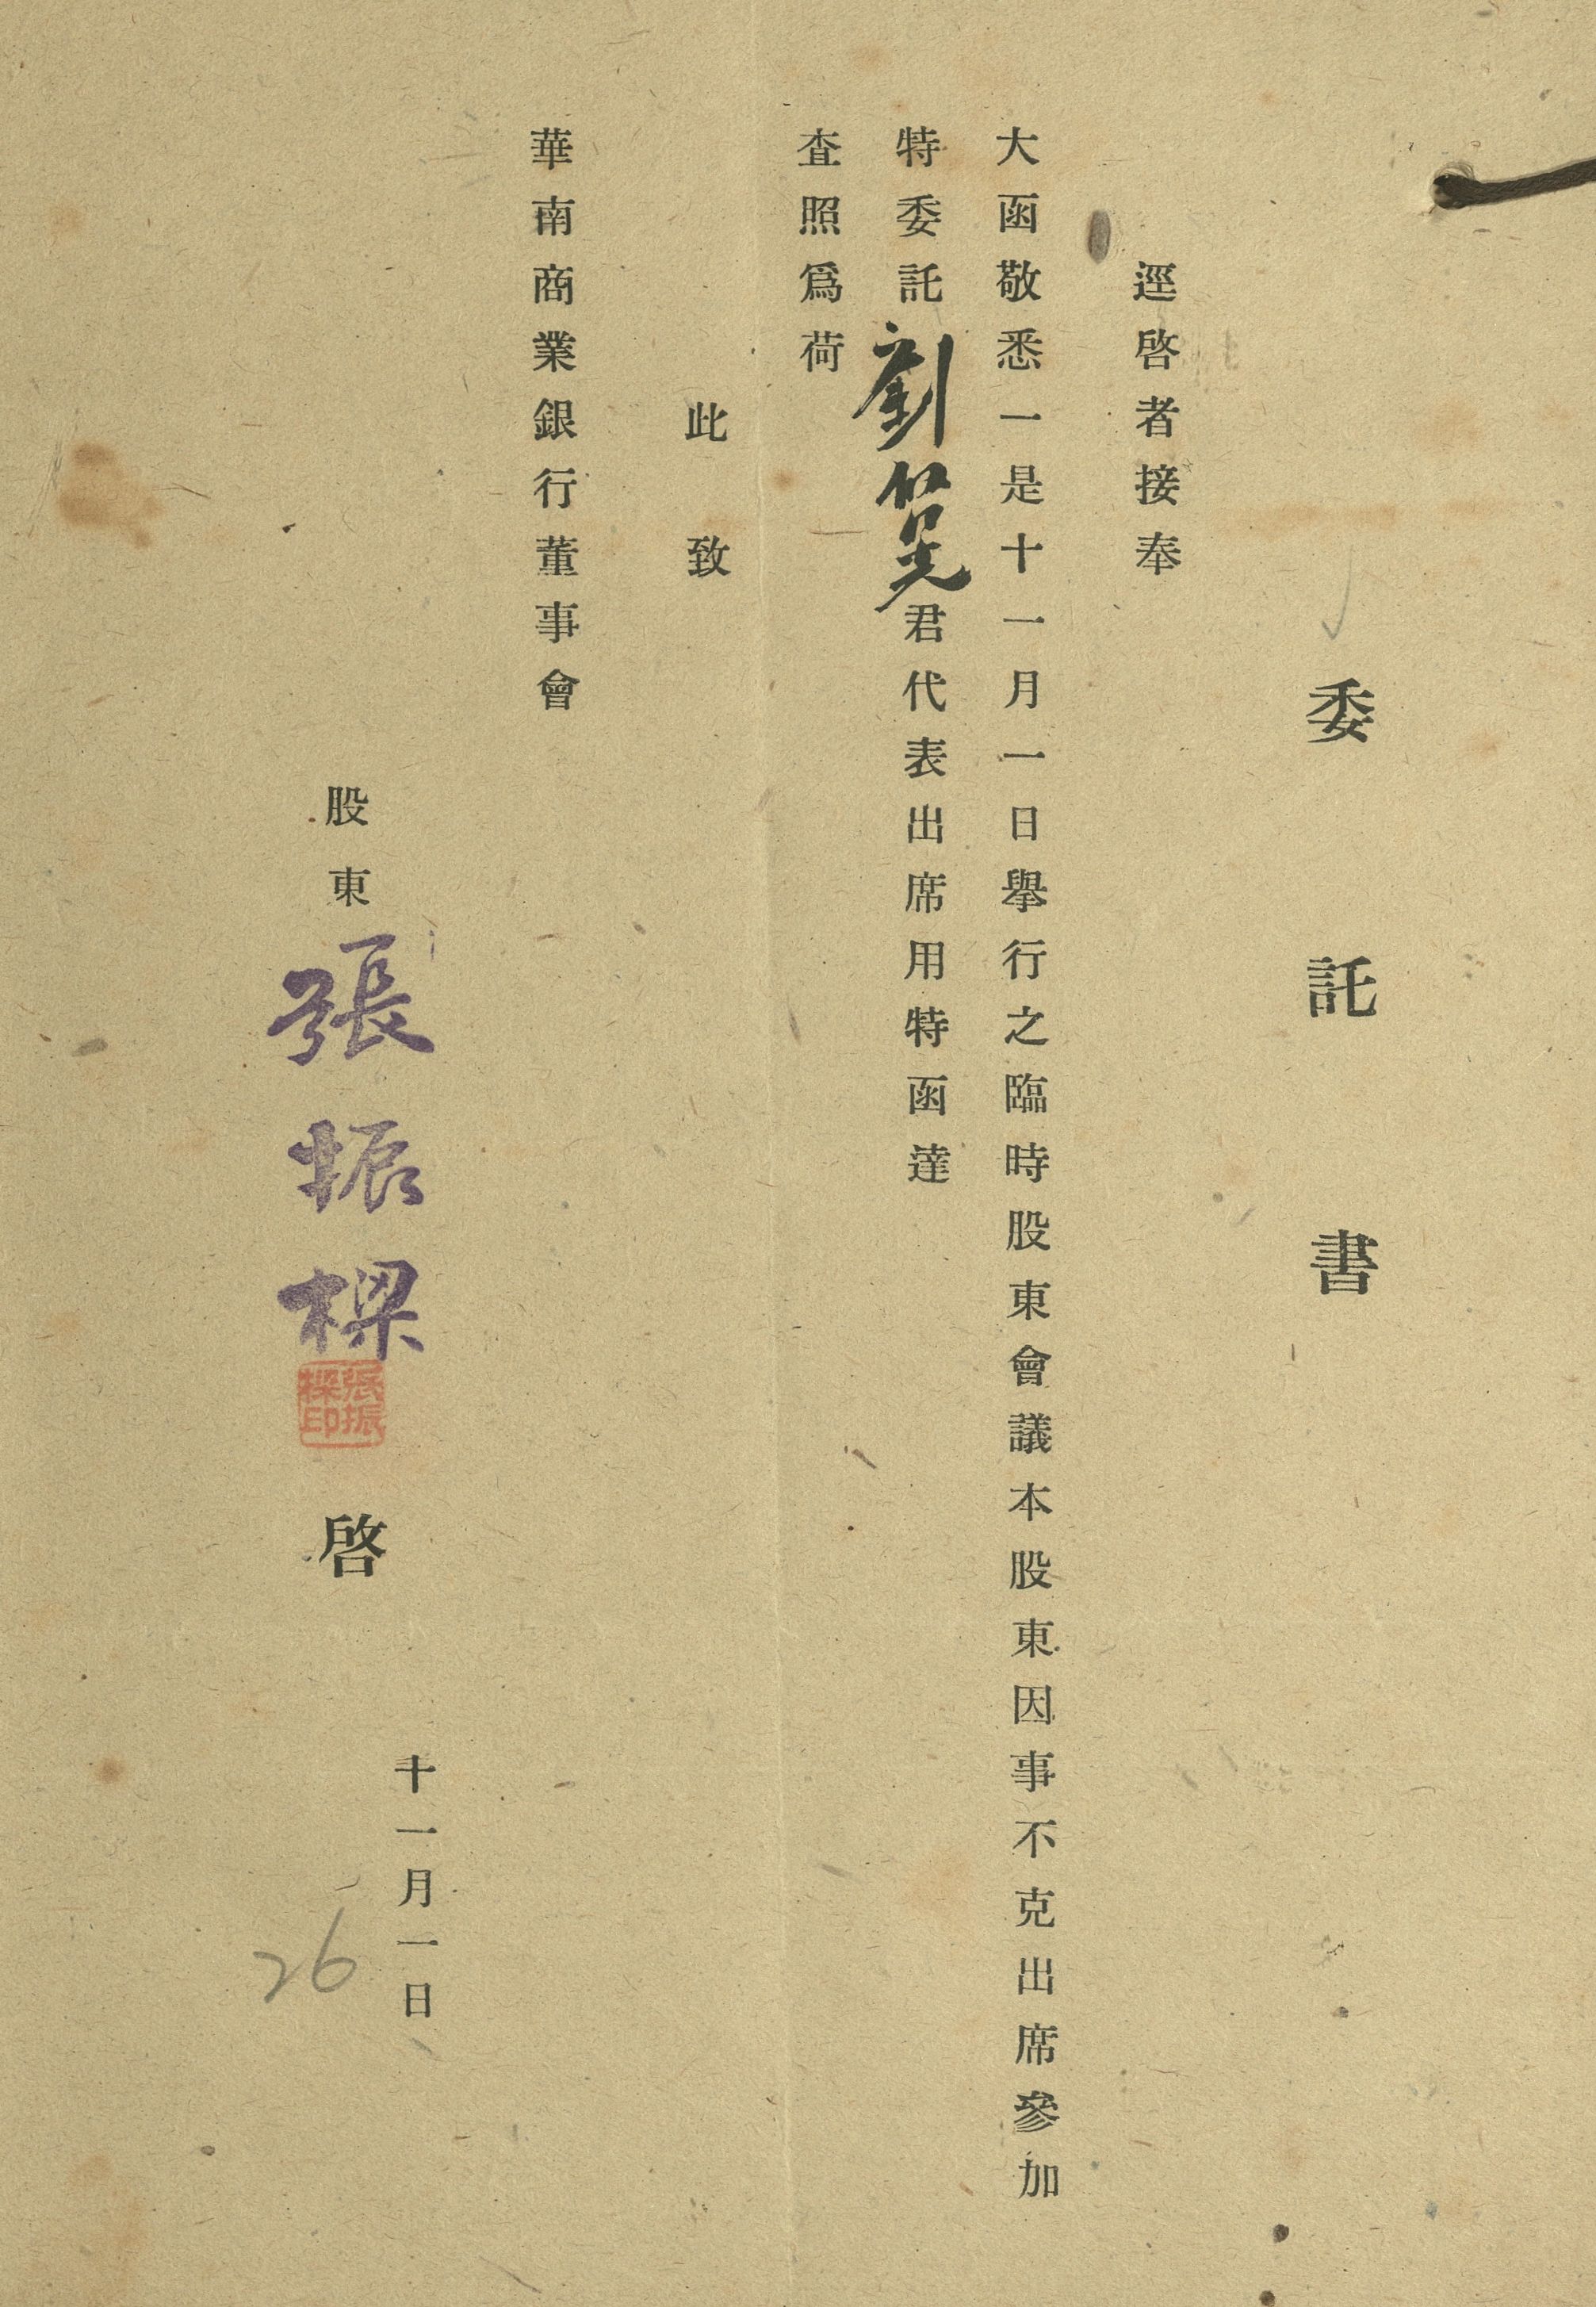 委託書
逕啓者接奉
大函敬悉一是十一月一日舉行之臨時股東會議本股東因事不克出席參加
特委託劉啓光君代表出席用特函達
査照爲荷
此致
華南商業銀行董事會
股東張振樑啓
張振樑印
十一月一日
26